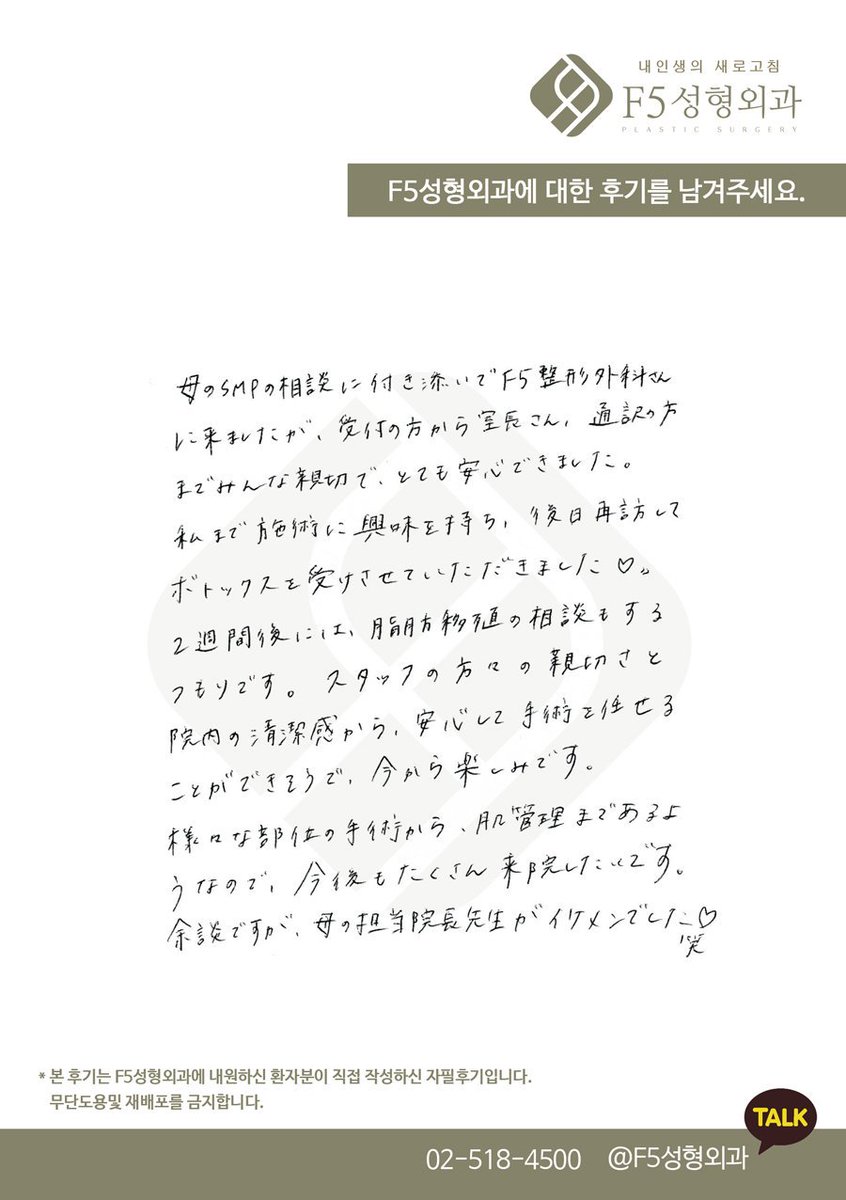 내인생의 새로고침
F5성형외과
PLASTIC SURGERY
F5성형외과에 대한 후기를 남겨주세요.
母のSMPの相談に付き添いでF5整形外科さん
に来ましたが、受付の方から室長さん、通訳の方
までみんな親切で、とても安心できました。
私まで施術に興味を持ち、後日再訪して
ボトックスを受けさせていただきました♡。
2週間後には、脂肪移殖の相談もする
つもりです。スタッフの方々の親切さと
院内の清潔感から、安心して手術を任せる
ことができそうで、今から楽しみです。
様々な部位の手術から、肌管理まであるよ
うなので、今後もたくさん来院したいです。
余談ですが、母の担当院長先生がイケメンでした♡
笑
* 본 후기는 F5성형외과에 내원하신 환자분이 직접 작성하신 자필후기입니다.
무단도용및 재배포를 금지합니다.
TALK
02-518-4500 @F5성형외과